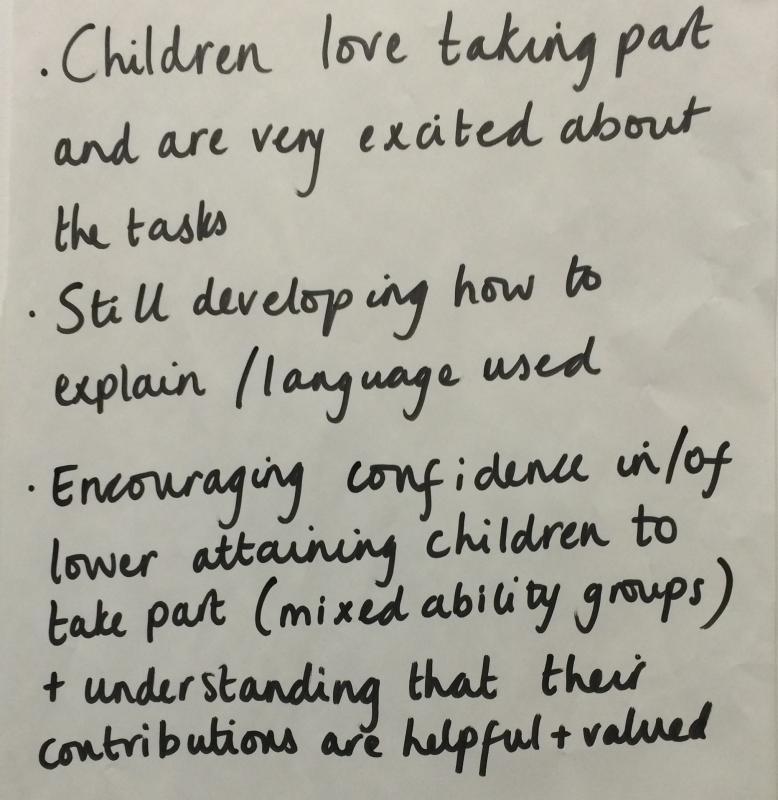 · Children love taking part
and are very excited about
the tasks
· Still developing how to
explain /language used
· Encouraging confidence in/of
lower attaining children to
take part (mixed ability groups)
+ understanding that their
contributions are helpful + valued